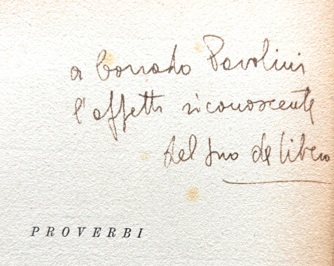 a Corrado Pavolini
l'affetto riconoscente
del suo de Libero
PROVERBI